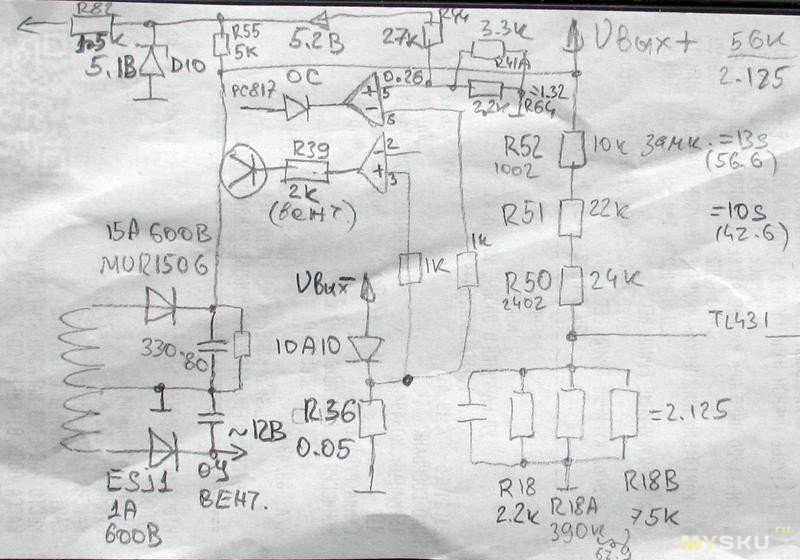 R82
1.5K
5.1В
D10
R55
5K
5.2В
R44
27K
3.3K
R41A
2.2K
=1.32
R64
Uвых+
56K
2.125
OC
PC817
0.26
+
5
-
6
R39
2K
(вент)
-
2
+
3
R52
1002
10K
замк. =13s
(56.6)
R51
22K
=10s
(42.6)
R50
2402
24K
TL431
15A 600В
MUR1506
330.80
Uвых-
10A10
1K
1K
R36
0.05
~12В
ОУ
ВЕНТ.
ES1J
1A
600В
=2.125
R18
2.2K
R18A
390K
R18B
75K
MYSKU.ru